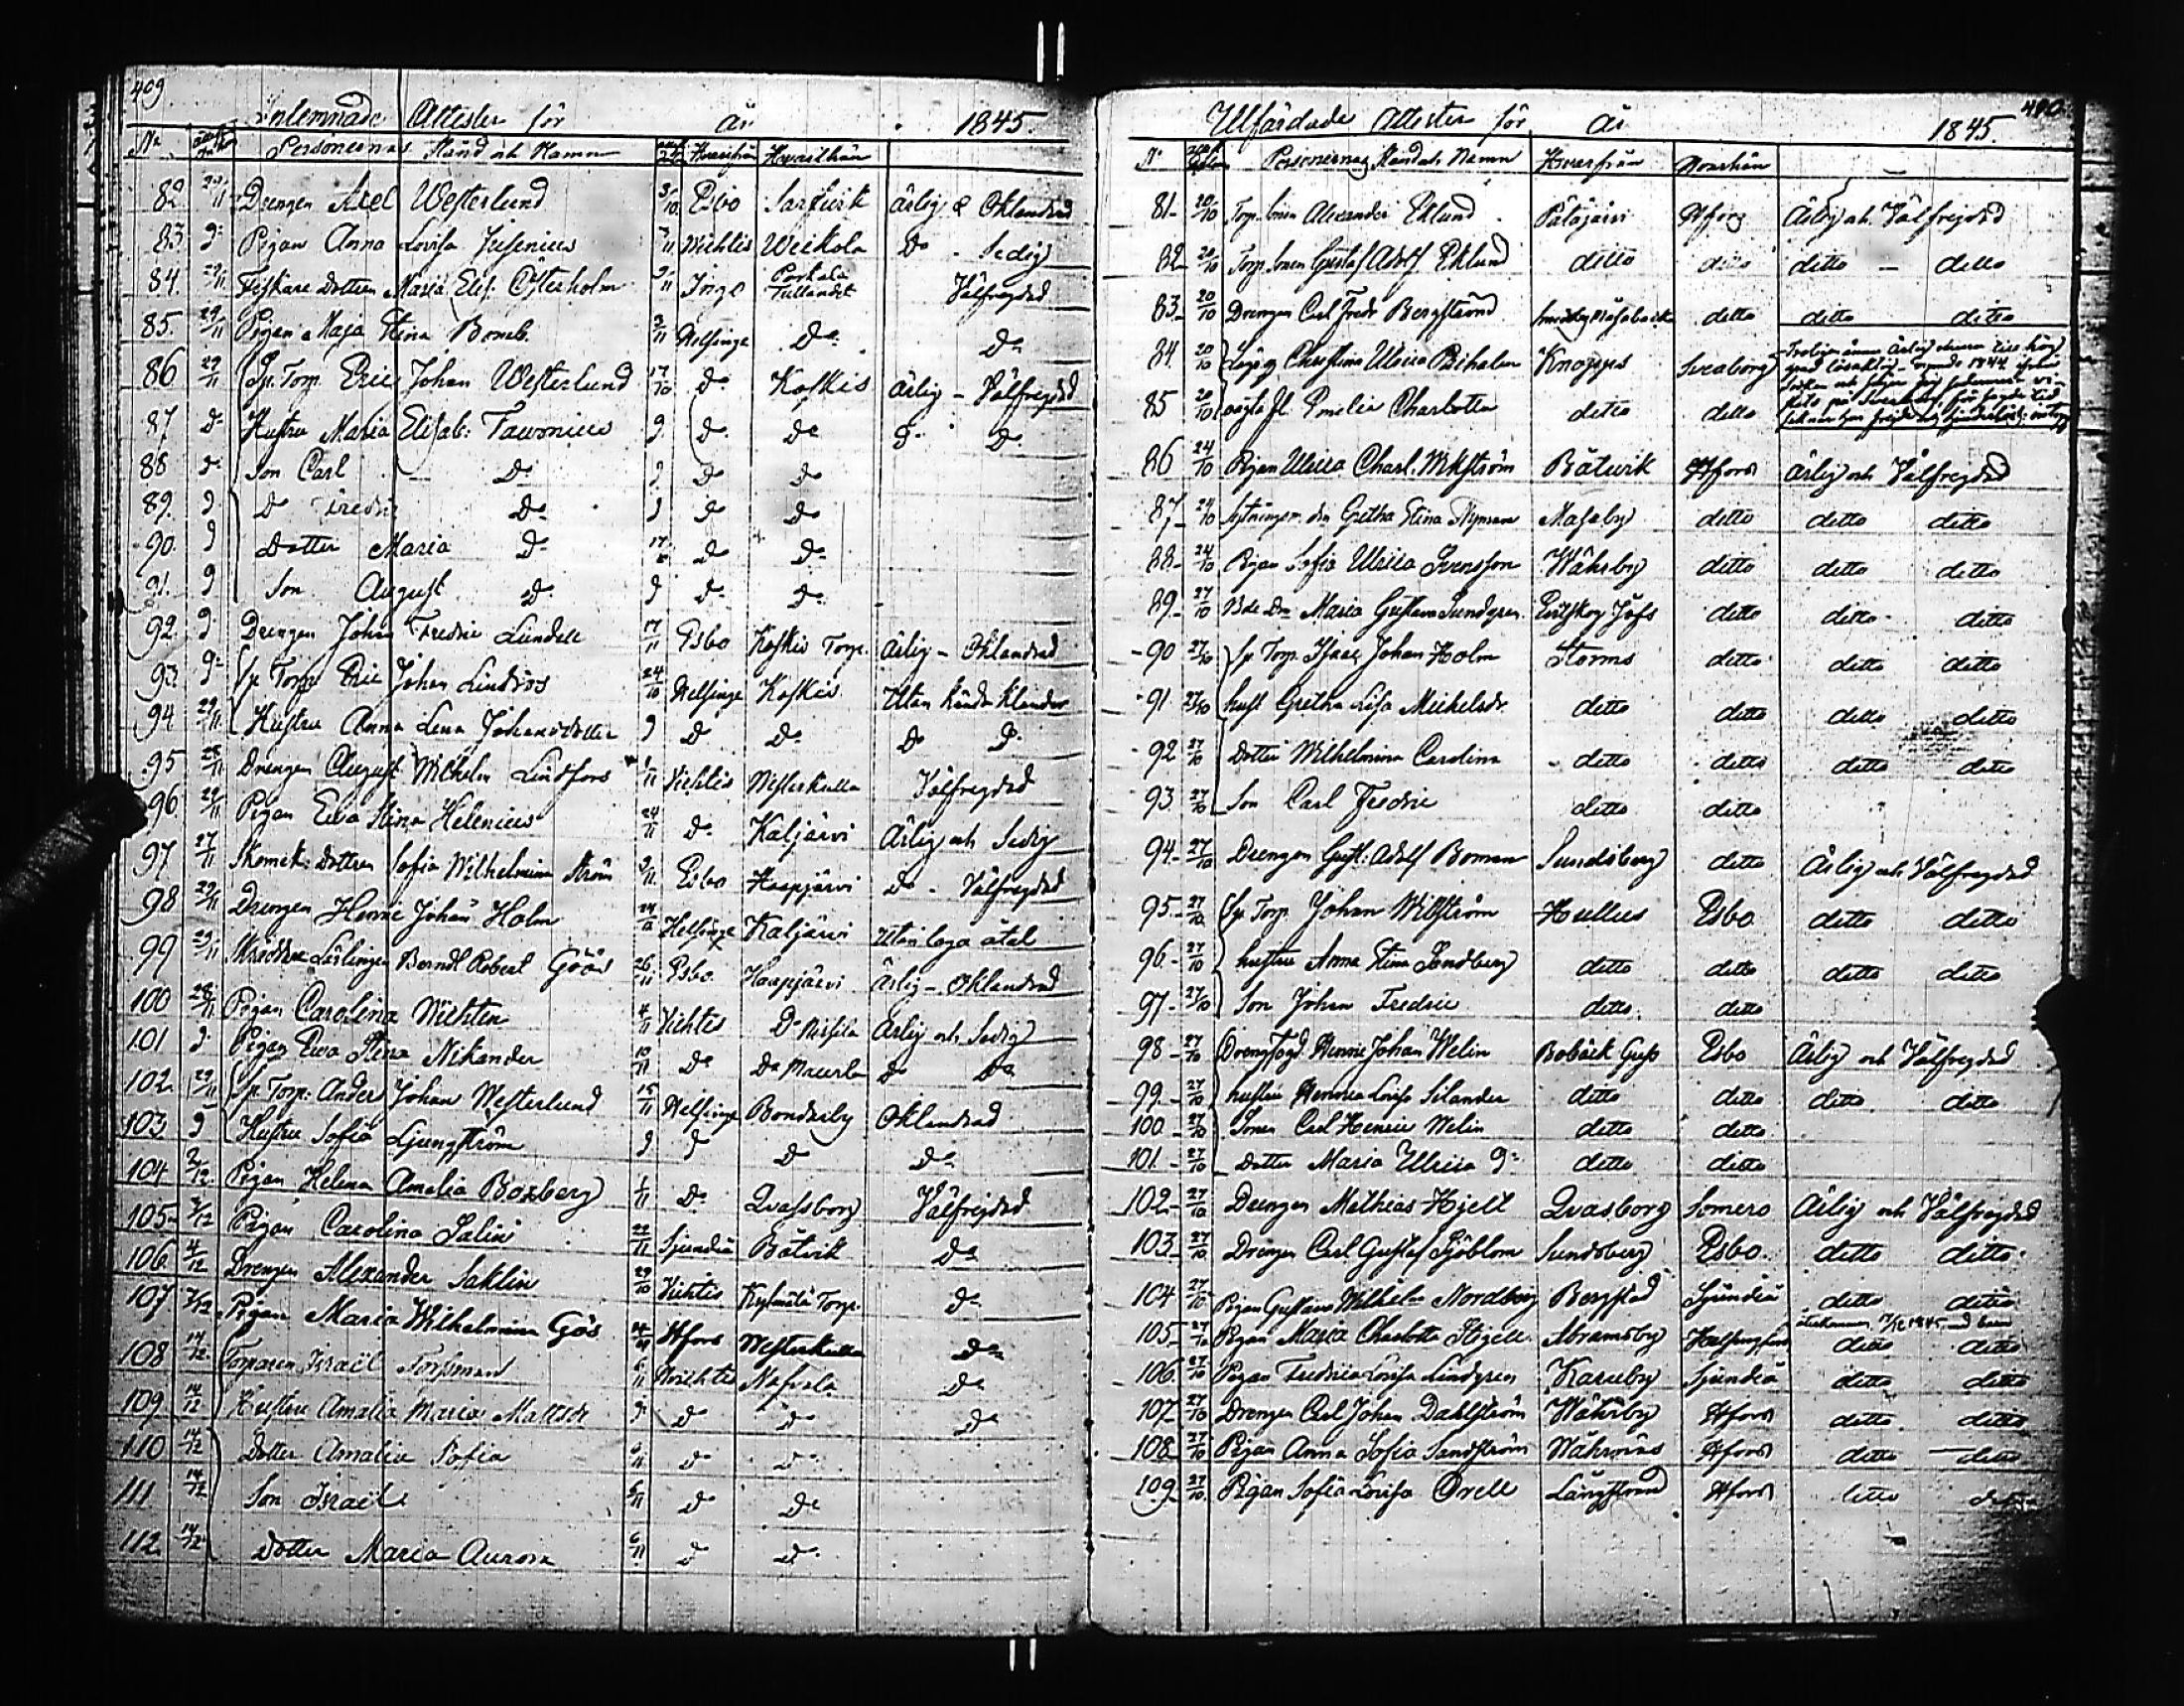 409
Inlemnade Attester för år 1845.
No Personernas Stånd och Namn Hvarifrån Hvarthän
82 29/11 Drengen Axel Westerlund 3/10 Esbo Sarfvik Ärlig & Oklandrad
83 Do Pigan Anna Lovisa Jusenius /11 Wichtis Weikola Do - Sedig
84. 29/11 Fiskare Dottren Maria Elis. Österholm /11 Ingo Porkala Tullandet Välfregdad
85. 29/11 Pigan Maja Stina Bomb. 3/11 Helsinge Do Do
86 29/11 Sp. Torp. Eric Johan Westerlund 17/10 Do Koskis Ärlig - Välfregdad
87 Do Hustru Maria Elisab: Tawonius Do Do Do Do Do
88 Do Son Carl Do Do Do Do
89. Do Do Fredric Do Do Do Do
90. Do Dotter Maria Do 17 Do Do
91. Do Son August Do Do Do Do
92. Do Drengen Johan Fredric Lundell 17/11 Esbo Koskis Torp. Ärlig - Oklandrad
93. Do Sp. Torp. Eric Johan Lindros 24/10 Helsinge Koskis Utan kända klander
94 29/11 Hustru Anna Lena Johansdotter Do Do Do Do Do
95 28/11 Drengen August Wilhelm Lindfors 1/11 Vichtis Westerkulla Välfregdad
96 29/11 Pigan Eva Stina Helenius 24/11 Do Kaljärvi Ärlig och Sedig
97 27/11 Skomak: Dottren Sofia Wilhelmina Ström /11 Esbo Haapjärvi Do - Välfregdad
98 29/11 Drengen Henric Johan Holm 24/11 Helsinge Kaljärvi Utan laga åtal
99 29/11 Skräddare Lärlingen Berndt Robert Göös 26/11 Esbo Haapjärvi Ärlig - Oklandrad
100 28/11 Pigan Carolina Wichten 4/11 Vichtis Do Ärlig och Sedig
101 Do Pigan Eva Stina Nikander 10/11 Do Do Maurla Do Do
102. 29/11 Sp. Torp: Anders Johan Westerlund 15/11 Helsinge Bondarby Oklandrad
103 Do Hustru Sofia Ljungström Do Do Do Do
104 2/12 Pigan Helena Amalia Boxberg 1/11 Do Qvasborg Välfrejdad
105 /12 Pigan Carolina Salin 22/11 Sjundeå Båtvik Do
106 4/12 Drengen Alexander Saklin 29/10 Vichtis Kylmälä Torp. Do
107 7/12 Pigan Maria Wilhelmina Gös Hfors Westerkulla Do
108 14/12 Torparen Israël Forssman 6/11 Wichtis Do
109 14/12 Hustru Amalia Maria Mattsdr Do Do Do Do
110 14/12 Dotter Amalia Sofia 6/11 Do Do
111 14/12 Son Israël 6/11 Do Do
112. 14/12 Dotter Maria Aurora 6/11 Do Do
410
Utfärdade Attester för år 1845.
No Personernas Stånd och Namn Hvarifrån Hvarthän
81 20/10 Torp. Sonen Alexander Eklund Pätäjärvi Hfors Ärlig och Välfregdad
82 20/10 Torp. Sonen Gustaf Adolf Eklund ditto ditto ditto - ditto
83 20/10 Drengen Carl Fredr Bergstrand ditto ditto ditto
84 20/10 Christina Ulrica Knapps Sveaborg
85 20/10 Emelie Charlotta ditto ditto
86 24/10 Pigan Ulrica Charl. Wikström Båtvik Hfors Ärlig och Välfregdad
87 24/10 Gretha Stina Nyman Masaby ditto ditto ditto
88 24/10 Pigan Sofia Ulrica Svensson Wåhrby ditto ditto ditto
89 27/10 Bde Dr Maria Gustava Lundgren ditto ditto ditto
90 27/10 Sp. Torp. Isaac Johan Holm Storms ditto ditto ditto
91 27/10 hust Gretha Lisa Michelsdr. ditto ditto ditto ditto
92 27/10 Dotter Wilhelmina Carolina ditto ditto ditto ditto
93 27/10 Son Carl Fredric ditto ditto
94 27/10 Drengen Gust: Adolf Boman Sundsberg ditto Ärlig och Välfregdad
95 27/10 Sp. Torp. Johan Wikström Hullus Esbo ditto ditto
96 27/10 hustru Anna Stina Sandberg ditto ditto ditto ditto
97 27/10 Son Johan Fredric ditto ditto
98 27/10 Drengfogd. Henric Johan Welin Bobäck Gusb Esbo Ärlig och Välfregdad
99 27/10 hustru Henrica Lovisa Silander ditto ditto ditto ditto
100 27/10 Sonen Carl Henric Welin ditto ditto
101 27/10 Dotter Maria Ulrica Do ditto ditto
102 27/10 Drengen Mathias Hjelt Qvasborg Somero Ärlig och Välfregdad
103 27/10 Drengen Carl Gustaf Sjöblom Sundsberg Esbo. ditto ditto
104 27/10 Pigan Gustava Wilhelm. Nordberg Bergstad Sjundeå ditto ditto
105 27/10 Pigan Maria Charlotta Hjelt Abramsby Helsingfors ditto ditto
106 27/10 Pigan Fredrica Lovisa Lindgren Karuby Sjundeå ditto ditto
107 27/10 Drengen Carl Johan Dahlström Wåhrby Hfors ditto ditto
108 27/10 Pigan Anna Sofia Sandström Hfors ditto ditto
109 27/10 Pigan Sofia Lovisa Orell Långstrand Hfors ditto ditto